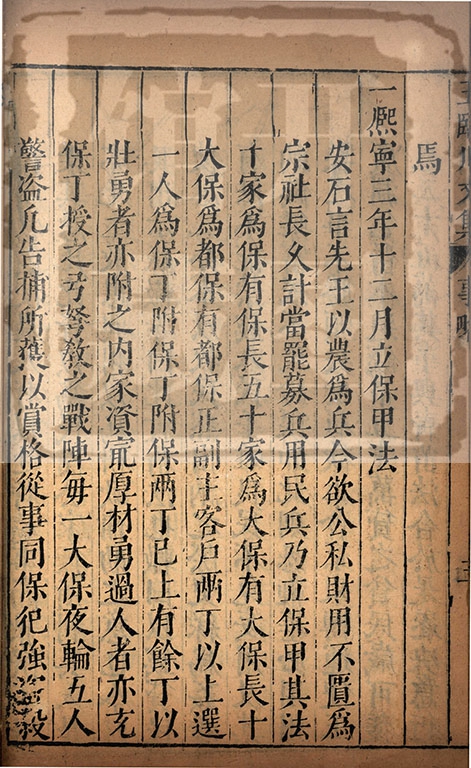 焉
一熙寧三年十二月立保甲法
安石言先王以農爲兵今欲公私財用不匱爲
宗社長久計當罷募兵用民兵乃立保甲其法
十家爲保有保長五十家爲大保有大保長十
大保爲都保有都保正副主客戶兩丁以上選
一人爲保丁附保丁附保兩丁已上有餘丁以
壯勇者亦附之内家資㝡厚材勇過人者亦充
保丁授之弓弩敎之戰陣毎一大保夜輪五人
警盜凡告捕所獲以賞格從事同保犯強殺